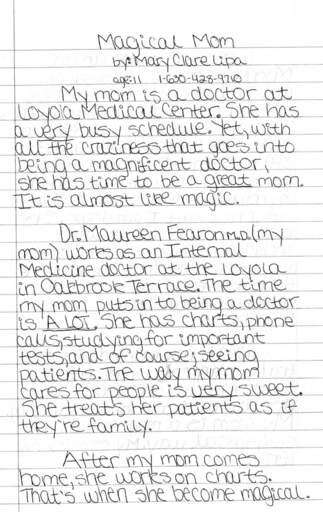 Magical Mom
by: Mary Clare Lipa
age: 11 1-630-428-9710
My mom is a doctor at
Loyola Medical Center. She has
a very busy schedule. Yet, with
all the craziness that goes into
being a magnificent doctor,
she has time to be a great mom.
It is almost like magic.
Dr. Maureen Fearon M.D. (my
mom) works as an Internal
Medicine doctor at the Loyola
in Oakbrook Terrace. The time
my mom puts in to being a doctor
is A LOT. She has charts, phone
calls, studying for important
tests, and of course, seeing
patients. The way my mom
cares for people is very sweet.
She treats her patients as if
they're family.
After my mom comes
home, she works on charts.
That's when she become magical.